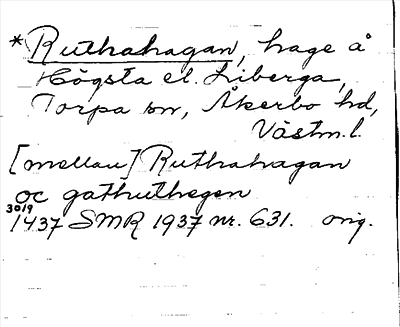 *Ruthahagan, hage å
Högsta el. Liberga,
Torpa sn, Åkerbo hd,
Västm.l.
[mellan] Ruthahagan
oc gathuthegen
30/9
1437 SMR 1937 nr. 631. orig.